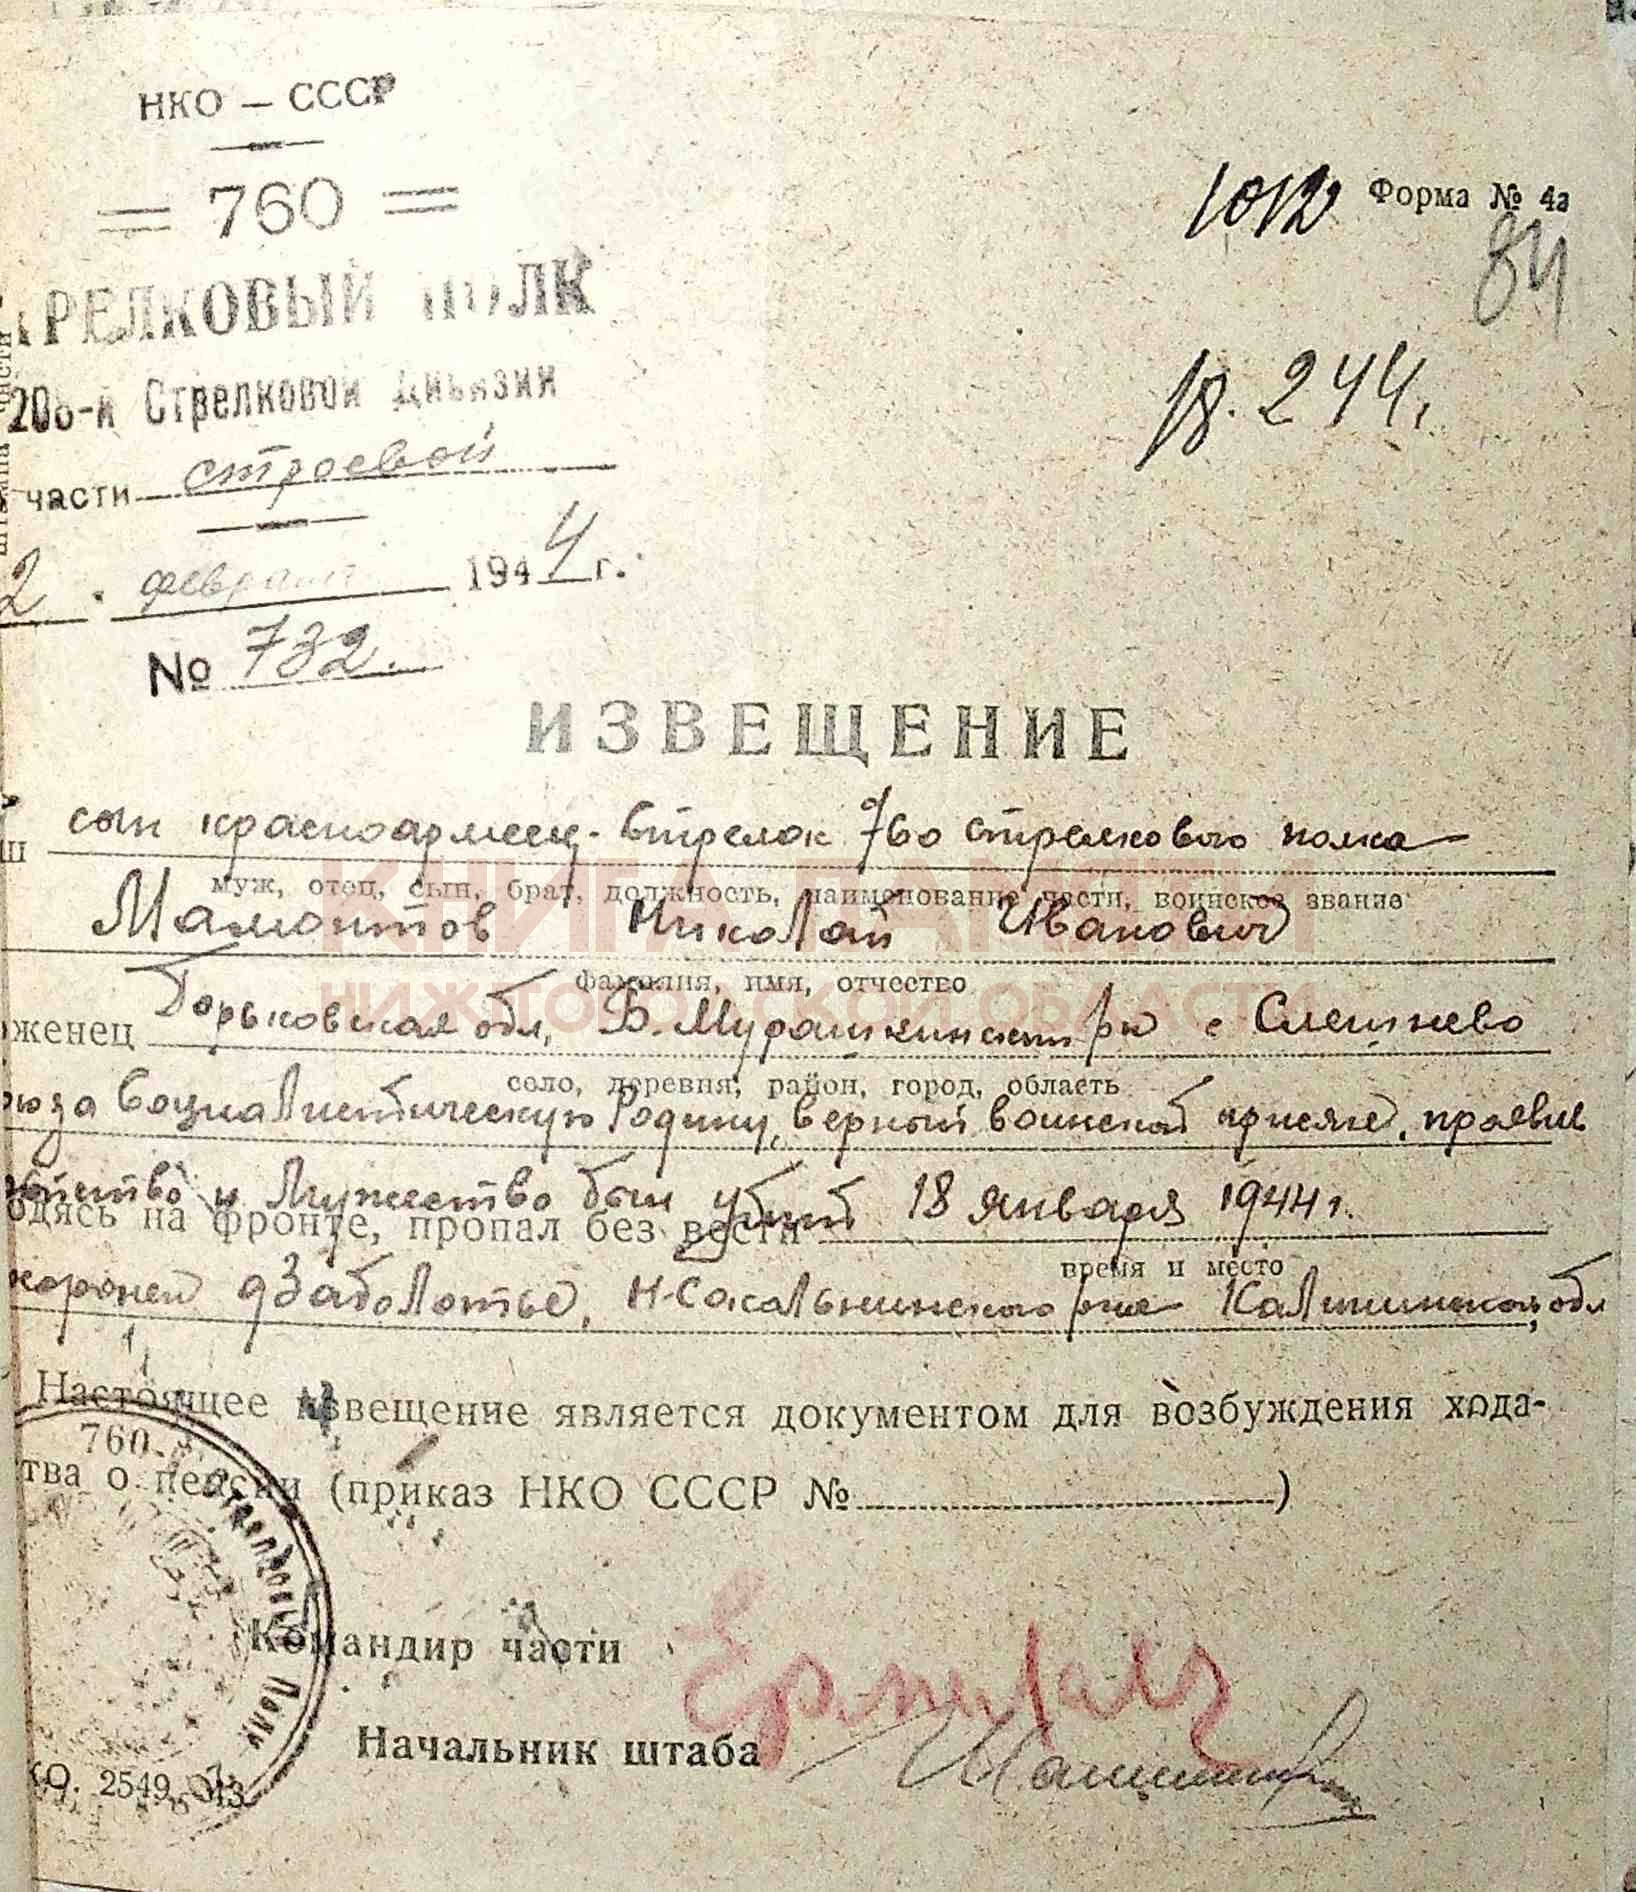 НКО — СССР
= 760 =
ТРЕЛКОВЫЙ ПОЛК
208-й Стрелковой Дивизии
части строевой
2 . февраля 1944 г.
№ 732.
1012 Форма № 4а
84
18.244.
ИЗВЕЩЕНИЕ
ш сын красноармеец-стрелок 760 стрелкового полка
муж, отец, сын, брат, должность, наименование части, воинское звание
Мамонтов Николай Иванович
фамилия, имя, отчество
оженец Горьковская обл, Б. Мурашкинский р-н с Слешнево
село, деревня, район, город, область
социалистическую Родину, верный воинской присяге, проявив
и мужество был убит 18 января 1944 г.
одясь на фронте, пропал без вести
время и место
хоронен д Заболотье, Н-Сокольнинского р-на Калининской обл
Настоящее извещение является документом для возбуждения хода-
тва о пенсии (приказ НКО СССР № )
Командир части
Начальник штаба
760 Стрелковый Полк
КО. 2549 013
КНИГА ПАМЯТИ
НИЖЕГОРОДСКОЙ ОБЛАСТИ